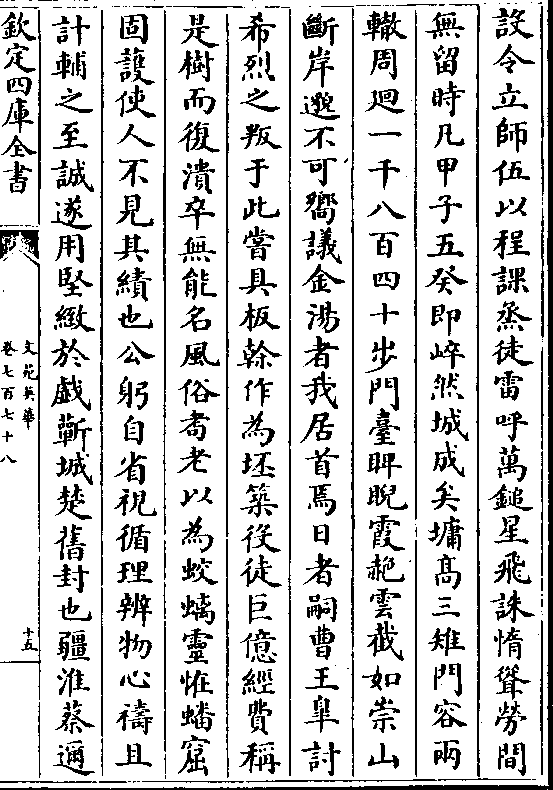 設令立師伍以程課烝徒雷呼萬鎚星飛誅惰聳勞間
無留時凡甲子五癸即崪然城成矣墉髙三雉門容兩
轍周迴一千八百四十步門臺睥睨霞赩雲截如崇山
斷岸邈不可嚮議金湯者我居首焉日者嗣曹王臯討
希烈之叛于此嘗具板榦作為坯築役徒巨億經費稱
是樹而復潰卒無能名風俗耆老以為蛟螭靈恠蟠窟
固䕶使人不見其績也公躬自省視循理辨物心禱且
計輔之至誠遂用堅緻於戲蘄城楚舊封也疆淮蔡邇
欽定四庫全書
文苑英華
卷七百七十八
十五